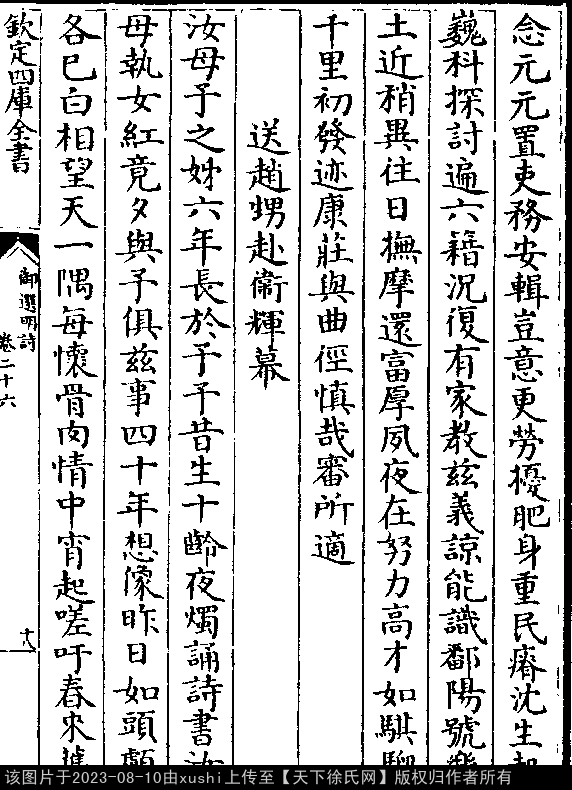 念元元置吏務安輯豈意更勞擾肥身重民瘠沈生
巍科探討遍六籍況復有家教兹義諒能識鄱陽號
土近稍異往日撫摩還富厚夙夜在努力高才如騏
千里初發迹康莊與曲徑慎哉審所適
送趙甥赴衛輝幕
汝母予之姊六年長於予予昔生十齡夜燭誦詩書
母執女紅竟夕與予俱兹事四十年想像昨日如頭
各已白相望天一隅每懷骨肉情中宵起嗟吁春來
欽定四庫全書
御選明詩
卷二十六
十八
该图片于2023-08-10由xushi上传至【天下徐氏网】版权归作者所有